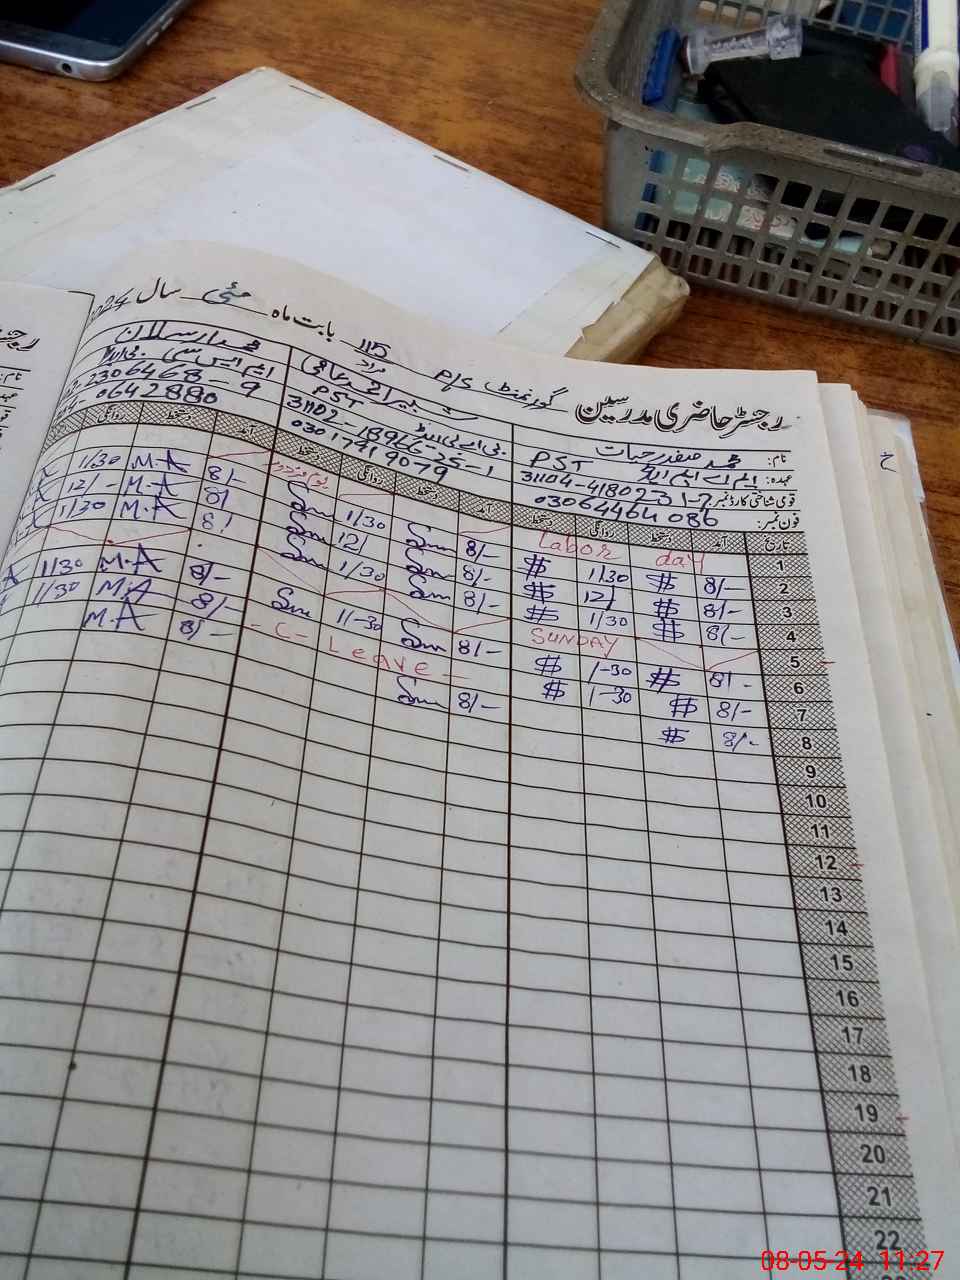 رجسٹر حاضری مدرسین گورنمنٹ P/S 115 مراد بابت ماہ مئی سال 2024
نام: محمد صفدر حیات شبیر احمد محمد ارسلان
عہدہ: PST ایم اے ایم ایڈ PST بی اے بی ایڈ ایم ایس سی
قومی شناختی کارڈ نمبر: 31104-41802 31102-18966-25-1 2306468-9
فون نمبر: 03064464086 03017919079 0642880
تاریخ آمد دستخط روانگی دستخط آمد دستخط روانگی دستخط آمد
1 Labor day یوم مزدور
2 8/- $ 1/30 $ 8/- Sm 1/30 Sm 8/- M.A 1/30
3 8/- $ 12/ $ 8/- Sm 12/ Sm 8/ M.A 12/-
4 8/- $ 1/30 $ 8/- Sm 1/30 Sm 8/ M.A 1/30
5 SUNDAY
6 8/- $ 1-30 $ 8/- Sm 1/-30 Sm 8/- M.A 1/30
7 8/- $ 1-30 $ - C - Leave - 8/- M.A 1/30
8 8/- $ 8/- Sm 8/- M.A
9
10
11
12
13
14
15
16
17
18
19
20
21
22
08-05-24 11:27